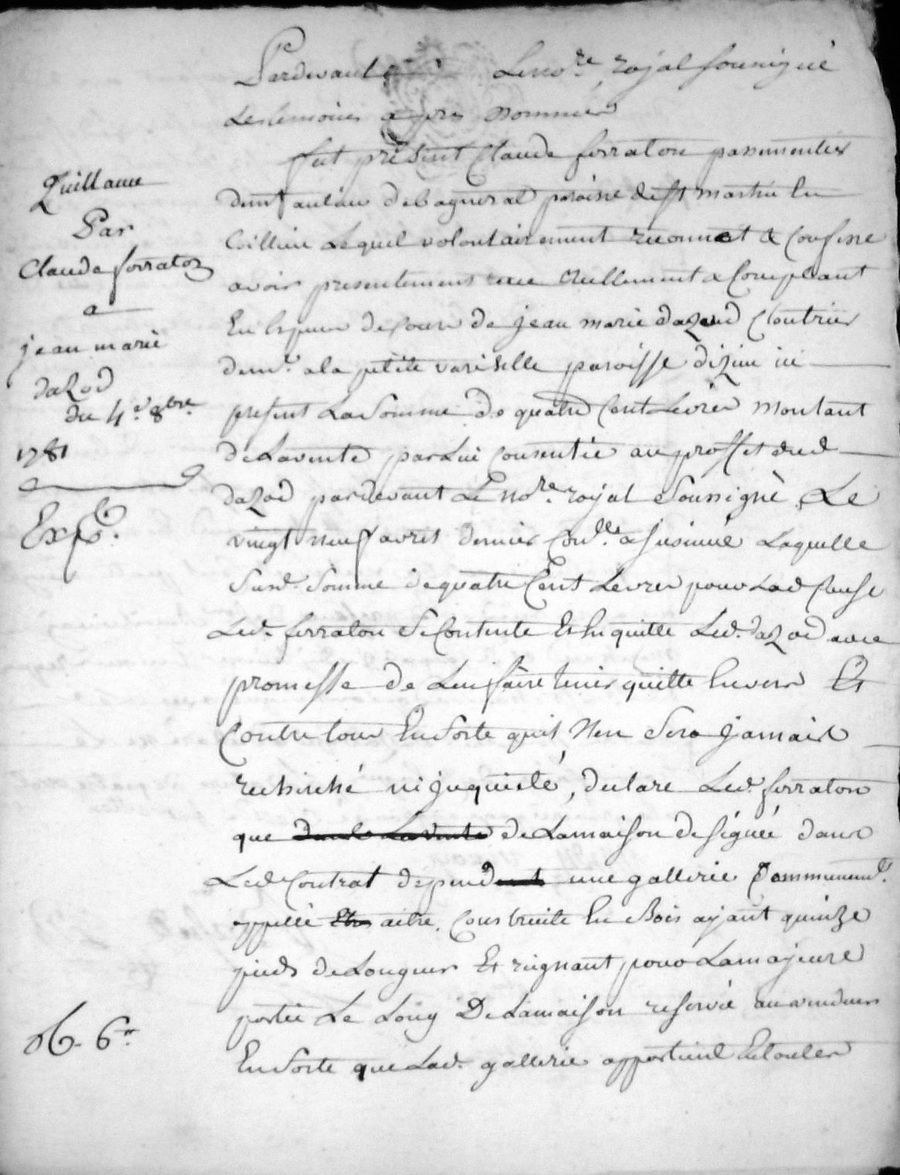 Pardevant Le no.re royal sousigné
Les temoins apres nommés
fut présent Claude ferraton passementier
dem.t au lieu de bagneral paroisse de st martin En
Coillieu Lequel volontairement reconnet & Confesse
avoir presentement reçu Reellement & Comptant
En Especes de Cours de jean marie dazod Cloutrier
dem.t a la petite variselle paroisse dizieu ici
present La Somme de quatre Cent Livres montant
de La vente par Lui Consentie au proffit dud.
dazod pardevant Le no.re royal Soussigné, Le
vingt neuf avril dernier Con.lle & insinué Laquelle
Susd. Somme de quatre Cent Livres pour Lad. Cause
Led. ferraton Se Contente Et En quitte Led. dazod avec
promesse de L'en faire tenir quitte Envers Et
Contre tous En Sorte quil N'en Sera Jamais
recherché ni inquieté, declare Led. ferraton
que dans La vente de La maison designée dans
Led. Contrat depend une gallerie Communem.t
appellé aitre, Construite En Bois ayant quinze
pieds de Longueur Et regnant pour La majeure
partie Le Long De La maison reservée au vendeur
En Sorte que Lad. gallerie appartient
Quittance
Par
Claude ferraton
a
jean marie
dazod
du 4.e 8bre
1781
Exp.é
06. 6.